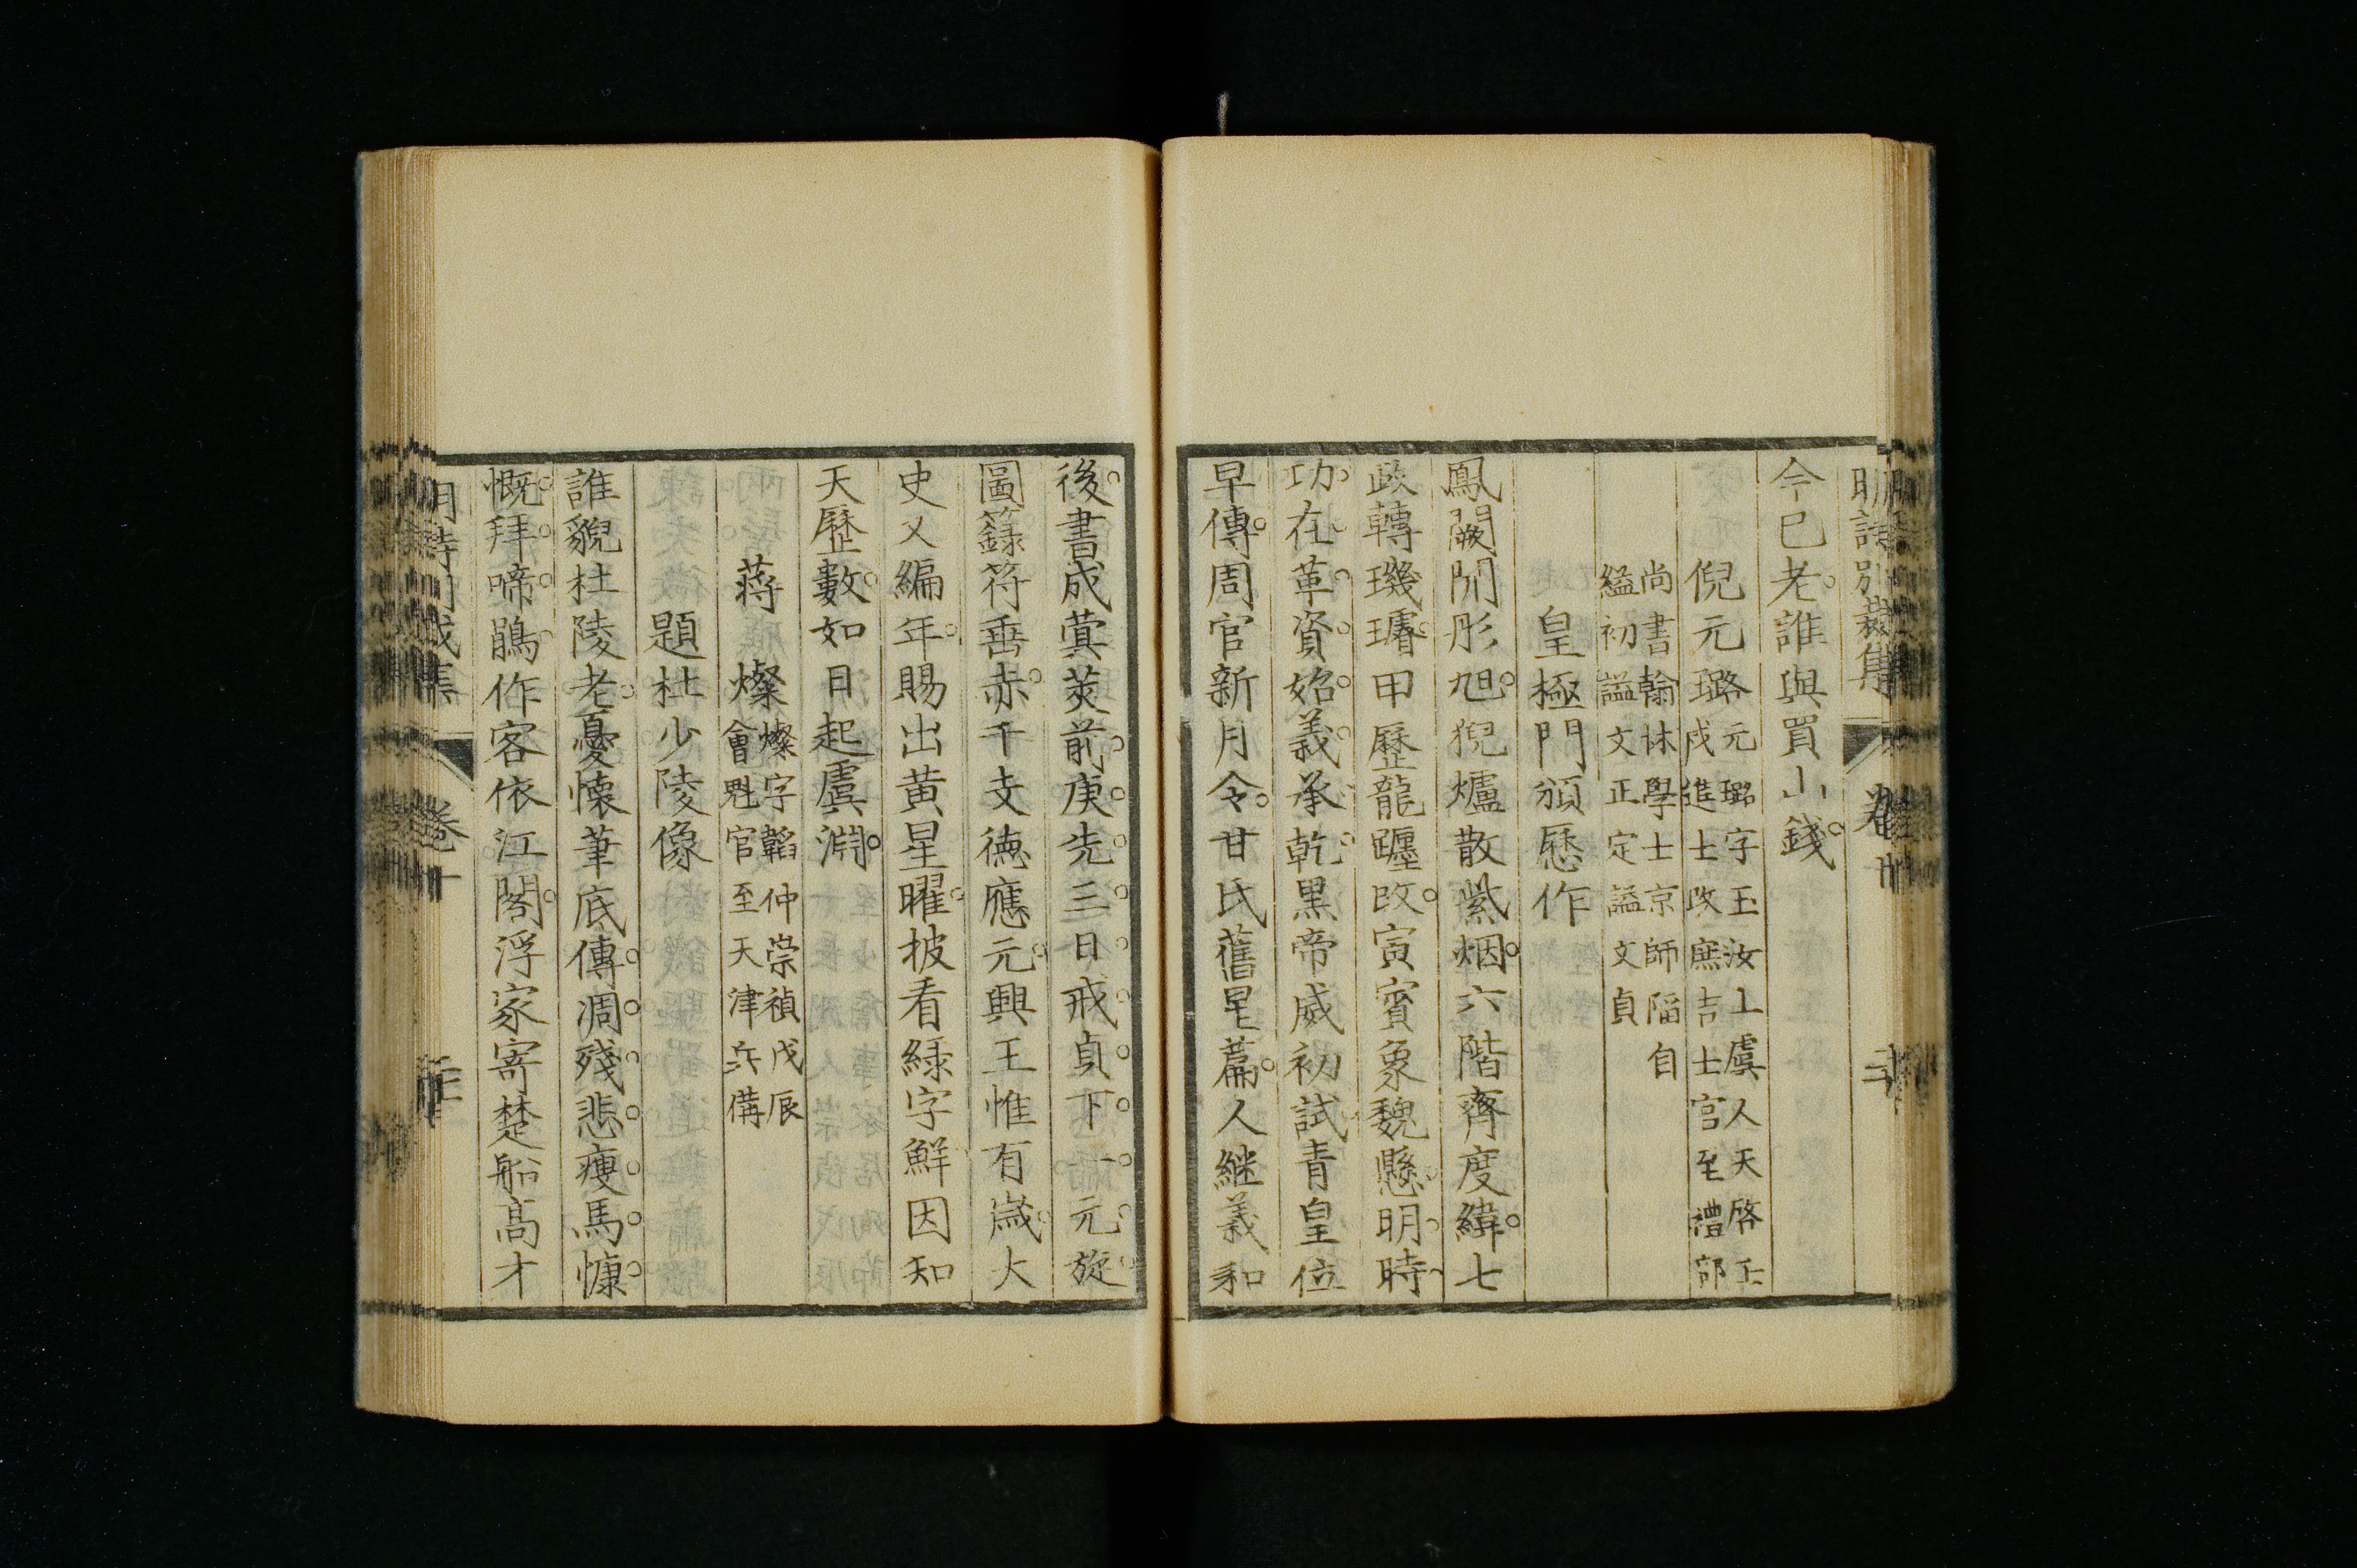 明詩別裁集 卷十
今已老誰與買山錢
倪元璐元璐字玉汝上虞人天啓壬
戌進士改庶吉士官至禮部
尚書翰林學士京師陷自
縊初諡文正定諡文貞
皇極門頒曆作
鳳闕開彤旭猊爐散紫烟六階齊度緯七
政轉璣璿甲歷龍躔改寅賓象魏懸明時
功在革資始義承乾黑帝威初試青皇位
早傳周官新月令甘氏舊星篇人継羲和
後書成蓂莢前庚先三日戒貞下一元旋
圖籙符垂赤干支德應元興王惟有歲大
史乂編年賜出黄星曜披看綠字鮮因知
天歷數如日起虞淵
蔣燦燦字韜仲崇禎戊辰
會魁官至天津兵備
題杜少陵像
誰貌杜陵老憂懷筆底傳凋殘悲瘦馬慷
慨拜啼鵑作客依江閣浮家寄楚船高才
卷十